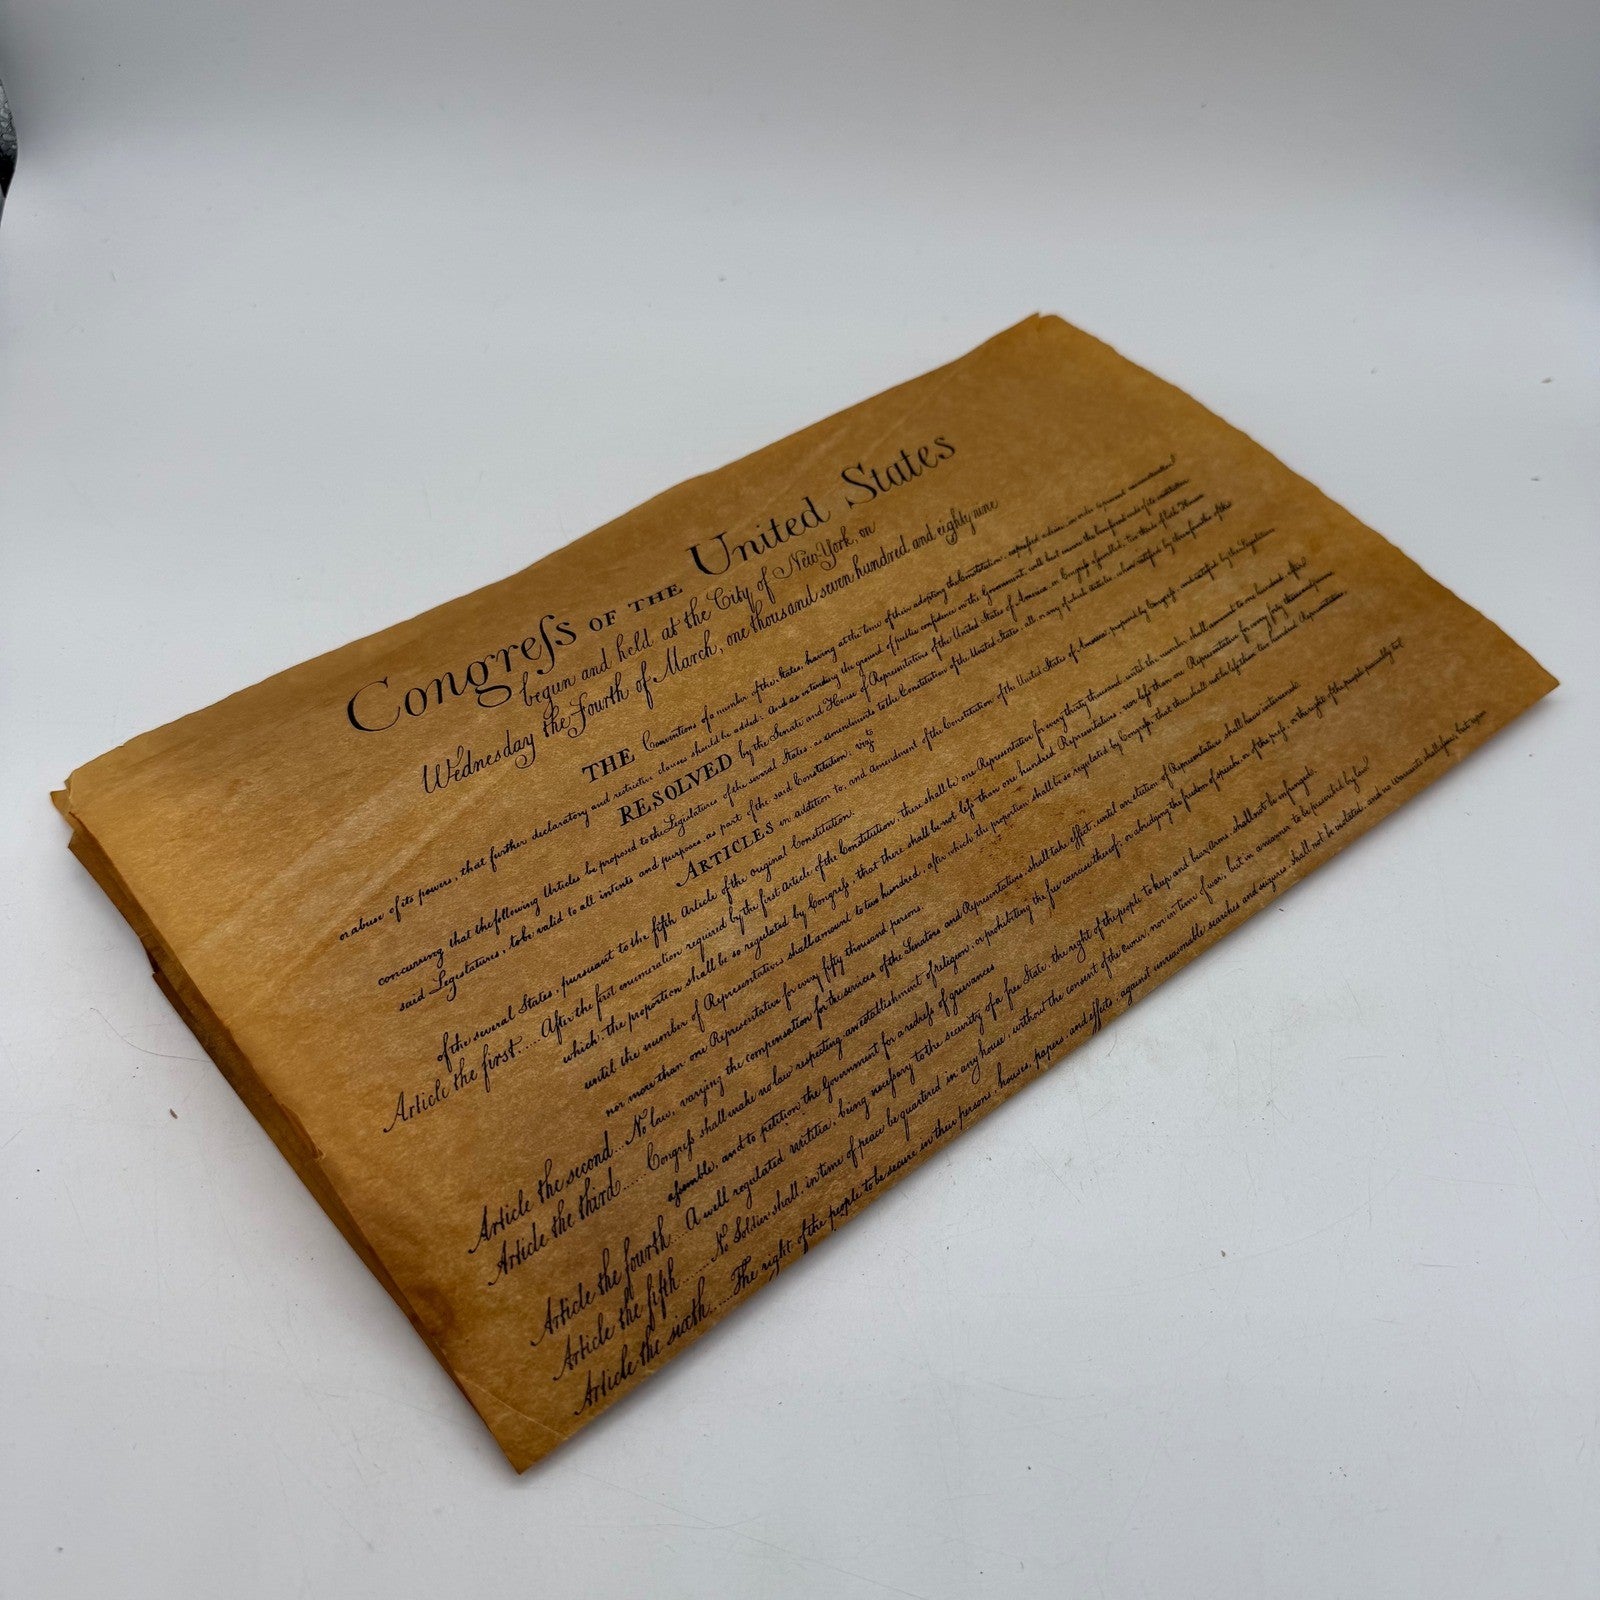 Congreſs OF THE United States
begun and held at the City of New-York, on
Wednesday the Fourth of March, one thousand seven hundred and eighty nine
THE Conventions of a number of the States, having at the time of their adopting the Constitution, expressed a desire, in order to prevent misconstruction
or abuse of its powers, that further declaratory and restrictive clauses should be added: And as extending the ground of public confidence in the Government, will best ensure the beneficent ends of its institution
RESOLVED by the Senate and House of Representatives of the United States of America, in Congreſs aſsembled, two thirds of both Houses
concurring that the following Articles be proposed to the Legislatures of the several States, as amendments to the Constitution of the United States, all or any of which Articles, when ratified by three fourths of the
said Legislatures, to be valid to all intents and purposes, as part of the said Constitution; vizt
ARTICLES in addition to, and amendment of the Constitution of the United States of America, proposed by Congreſs, and ratified by the Legislatures
of the several States, pursuant to the fifth Article of the original Constitution.
Article the first...... After the first enumeration required by the first Article of the Constitution, there shall be one Representative for every thirty thousand, until the number shall amount to one hundred, after
which, the proportion shall be so regulated by Congreſs, that there shall be not leſs than one hundred Representatives, nor leſs than one Representative for every forty thousand persons,
until the number of Representatives shall amount to two hundred, after which the proportion shall be so regulated by Congreſs, that there shall not be leſs than two hundred Representatives,
nor more than one Representative for every fifty thousand persons.
Article the second... No law, varying the compensation for the services of the Senators and Representatives, shall take effect, until an election of Representatives shall have intervened.
Article the third...... Congreſs shall make no law respecting an establishment of religion, or prohibiting the free exercise thereof; or abridging the freedom of speech, or of the preſs, or the right of the people peaceably to
aſsemble, and to petition the Government for a redreſs of grievances
Article the fourth... A well regulated militia, being neceſsary to the security of a free State, the right of the people to keep and bear Arms, shall not be infringed.
Article the fifth........ No Soldier shall, in time of peace be quartered in any house, without the consent of the owner, nor in time of war, but in a manner to be prescribed by law.
Article the sixth...... The right of the people to be secure in their persons, houses, papers, and effects, against unreasonable searches and seizures, shall not be violated, and no Warrants shall iſsue, but upon